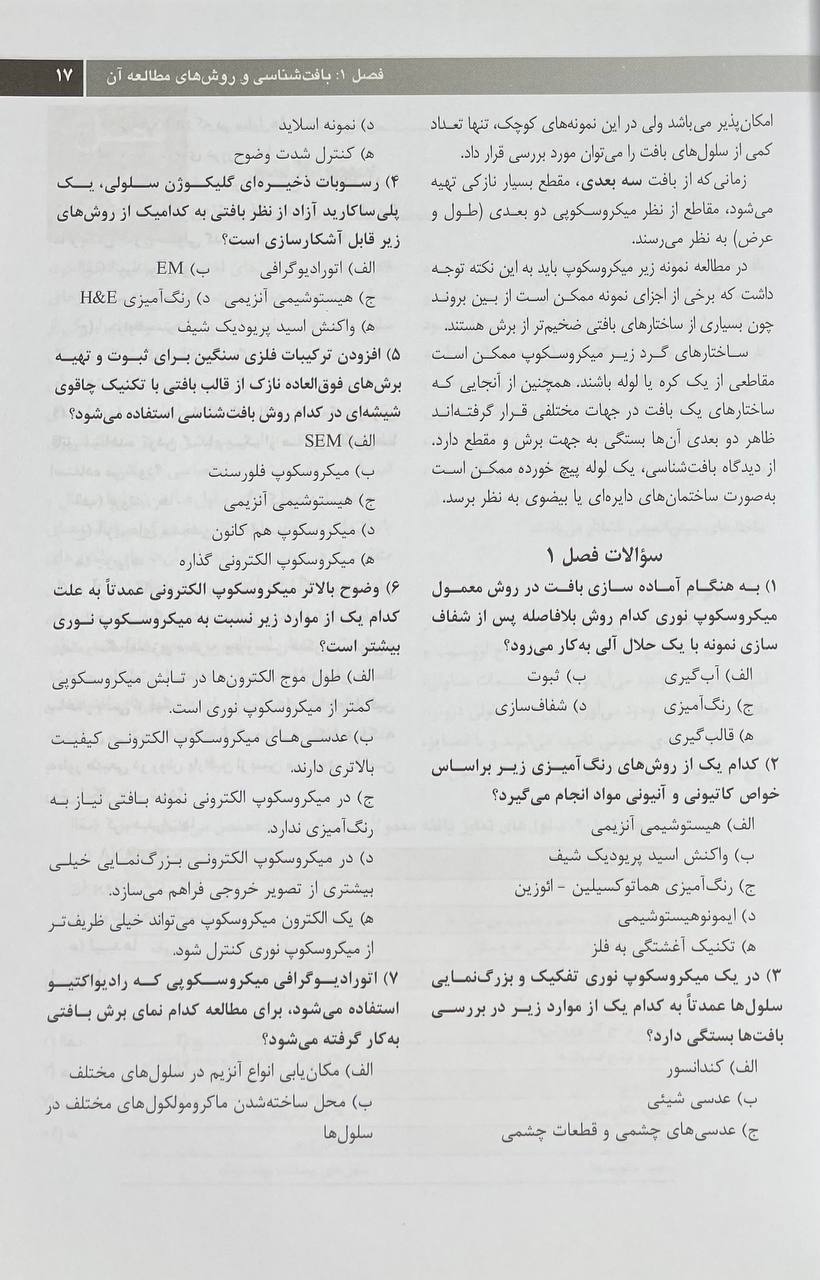 فصل ۱: بافت‌شناسی و روش‌های مطالعه آن ۱۷
امکان‌پذیر می‌باشد ولی در این نمونه‌های کوچک، تنها تعداد
کمی از سلول‌های بافت را می‌توان مورد بررسی قرار داد.
زمانی‌که از بافت سه بعدی، مقطع بسیار نازکی تهیه
می‌شود، مقاطع از نظر میکروسکوپی دو بعدی (طول و
عرض) به نظر می‌رسند.
در مطالعه نمونه زیر میکروسکوپ باید به این نکته توجه
داشت که برخی از اجزای نمونه ممکن است از بین بروند
چون بسیاری از ساختارهای بافتی ضخیم‌تر از برش هستند.
ساختارهای گرد زیر میکروسکوپ ممکن است
مقاطعی از یک کره یا لوله باشند. همچنین از آنجایی که
ساختارهای یک بافت در جهات مختلفی قرار گرفته‌اند
ظاهر دو بعدی آن‌ها بستگی به جهت برش و مقطع دارد.
از دیدگاه بافت‌شناسی، یک لوله پیچ خورده ممکن است
به‌صورت ساختمان‌های دایره‌ای یا بیضوی به نظر برسد.
سؤالات فصل ۱
۱) به هنگام آماده سازی بافت در روش معمول
میکروسکوپ نوری کدام روش بلافاصله پس از شفاف
سازی نمونه با یک حلال آلی به‌کار می‌رود؟
الف) آب‌گیری ب) ثبوت
ج) رنگ‌آمیزی د) شفاف‌سازی
ه) قالب‌گیری
۲) کدام یک از روش‌های رنگ‌آمیزی زیر براساس
خواص کاتیونی و آنیونی مواد انجام می‌گیرد؟
الف) هیستوشیمی آنزیمی
ب) واکنش اسید پریودیک شیف
ج) رنگ‌آمیزی هماتوکسیلین - ائوزین
د) ایمونوهیستوشیمی
ه) تکنیک آغشتگی به فلز
۳) در یک میکروسکوپ نوری تفکیک و بزرگ‌نمایی
سلول‌ها عمدتاً به کدام یک از موارد زیر در بررسی
بافت‌ها بستگی دارد؟
الف) کندانسور
ب) عدسی شیئی
ج) عدسی‌های چشمی و قطعات چشمی
د) نمونه اسلاید
ه) کنترل شدت وضوح
۴) رسوبات ذخیره‌ای گلیکوژن سلولی، یک
پلی‌ساکارید آزاد از نظر بافتی به کدامیک از روش‌های
زیر قابل آشکارسازی است؟
الف) اتورادیوگرافی ب) EM
ج) هیستوشیمی آنزیمی د) رنگ‌آمیزی H&E
ه) واکنش اسید پریودیک شیف
۵) افزودن ترکیبات فلزی سنگین برای ثبوت و تهیه
برش‌های فوق‌العاده نازک از قالب بافتی با تکنیک چاقوی
شیشه‌ای در کدام روش بافت‌شناسی استفاده می‌شود؟
الف) SEM
ب) میکروسکوپ فلورسنت
ج) هیستوشیمی آنزیمی
د) میکروسکوپ هم کانون
ه) میکروسکوپ الکترونی گذاره
۶) وضوح بالاتر میکروسکوپ الکترونی عمدتاً به علت
کدام یک از موارد زیر نسبت به میکروسکوپ نوری
بیشتر است؟
الف) طول موج الکترون‌ها در تابش میکروسکوپی
کمتر از میکروسکوپ نوری است.
ب) عدسی‌های میکروسکوپ الکترونی کیفیت
بالاتری دارند.
ج) در میکروسکوپ الکترونی نمونه بافتی نیاز به
رنگ‌آمیزی ندارد.
د) در میکروسکوپ الکترونی بزرگ‌نمایی خیلی
بیشتری از تصویر خروجی فراهم می‌سازد.
ه) یک الکترون میکروسکوپ می‌تواند خیلی ظریف‌تر
از میکروسکوپ نوری کنترل شود.
۷) اتورادیوگرافی میکروسکوپی که رادیواکتیو
استفاده می‌شود، برای مطالعه کدام نمای برش بافتی
به‌کار گرفته می‌شود؟
الف) مکان‌یابی انواع آنزیم در سلول‌های مختلف
ب) محل ساخته‌شدن ماکرومولکول‌های مختلف در
سلول‌ها